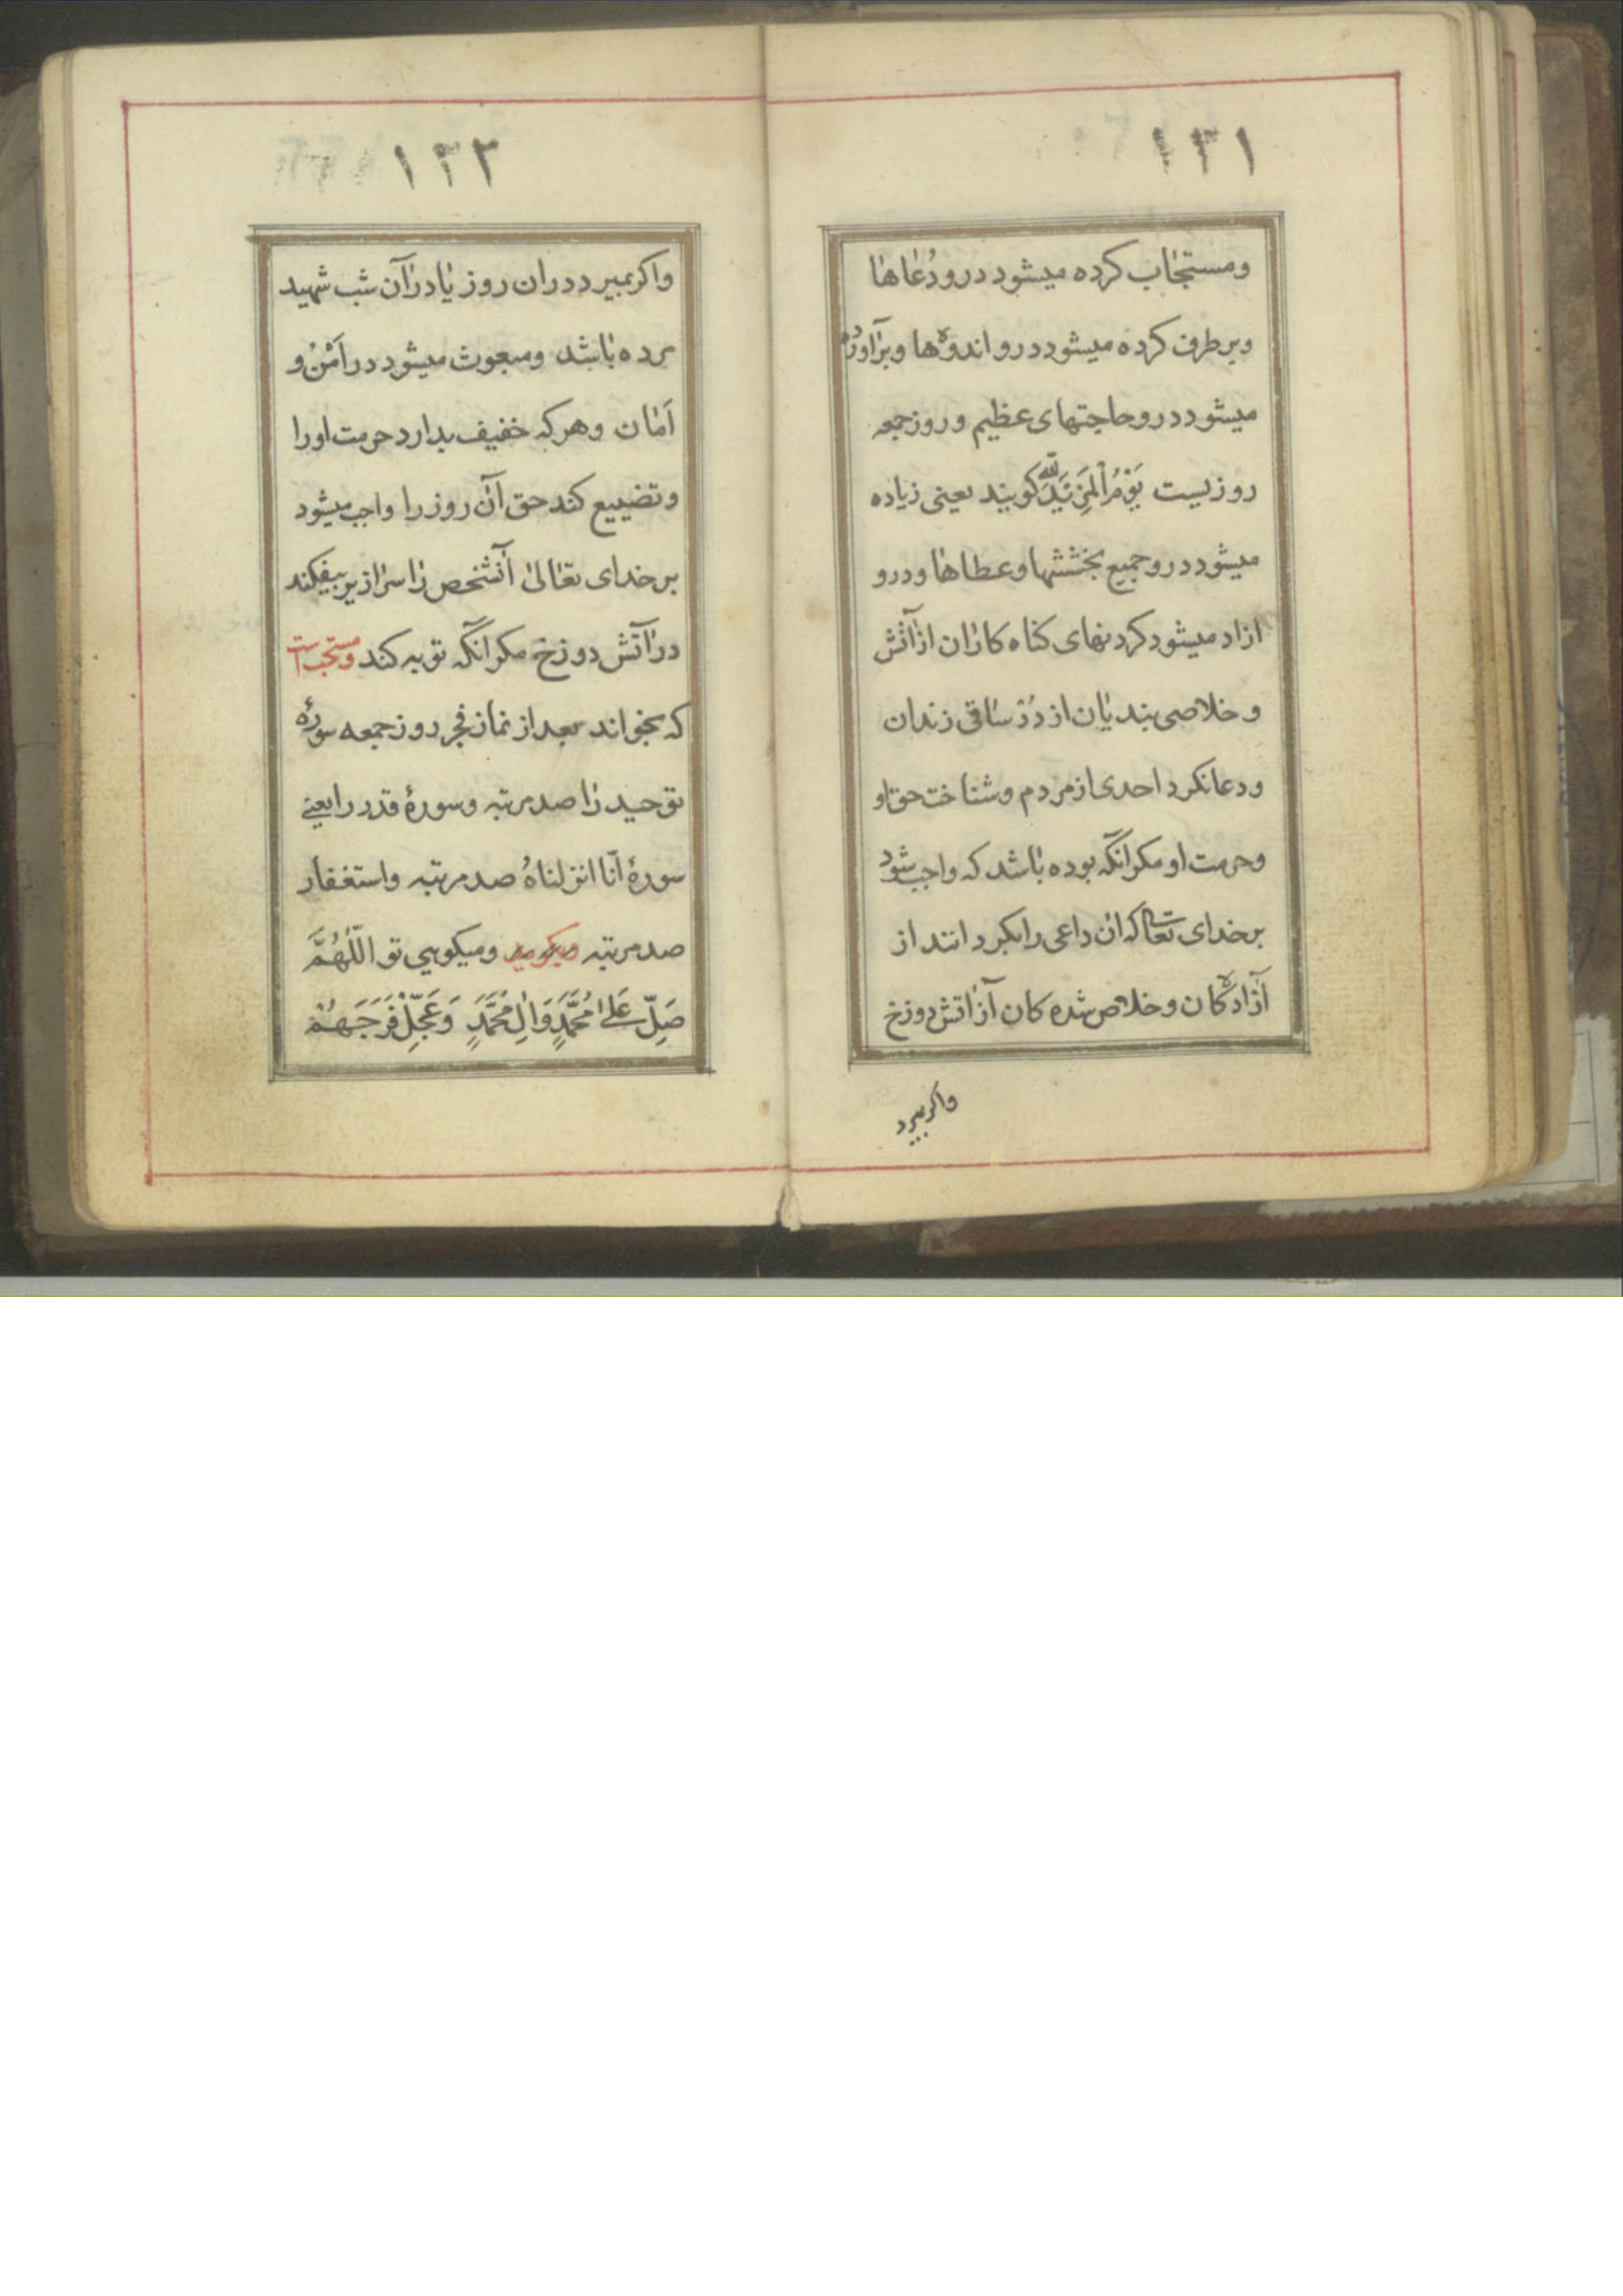 ۱۳۱
ومستجاب کرده میشود درو دُعاها
وبرطرف کرده میشود درو اندوه‌ها وبرآورده
میشود درو حاجتهای عظیم وروز جمعه
روزیست یَوْمُ الْمَزیَدِ للّٰه کویند یعنی زیاده
میشود درو جمیع بخششها وعطاها ودرو
ازاد میشود کردنهای کناه کاران از آتش
وخلاصی بندیان از دُز ساقی زندان
ودعا نکرد احدی از مردم وشناخت حق او
وحرمت او مکر انکه بوده باشد که واجب شود
بر خدای تعالی که ان داعی را بکرداند از
آزادکان وخلاص شده کان آز اتش دوزخ
واکر بمیرد
۱۳۲
واکر بمیرد دران روز یا در آن شب شهید
مرده باشد ومبعوث میشود در اَمْنُ و
اَمان وهر که خفیف بدارد حرمت اورا
وتضییع کند حق آن روز را واجب میشود
بر خدای تعالیٰ آنشخص را سرازیر بیفکند
در آتش دوزخ مکر انکه توبه کند ومستحب است
که بخواند بعد از نماز فجر روز جمعه سورۀ
توحید را صد مرتبه وسورۀ قدر را یعنے
سورۀ انّا انزلناهُ صد مرتبه واستغفار
صد مرتبه ومیکویی تو اللّٰهُمَّ
صَلِّ عَلیٰ مُحَمَّدٍ وَاٰلِ مُحَمَّدٍ وَعَجِّلْ فَرَجَهُمْ